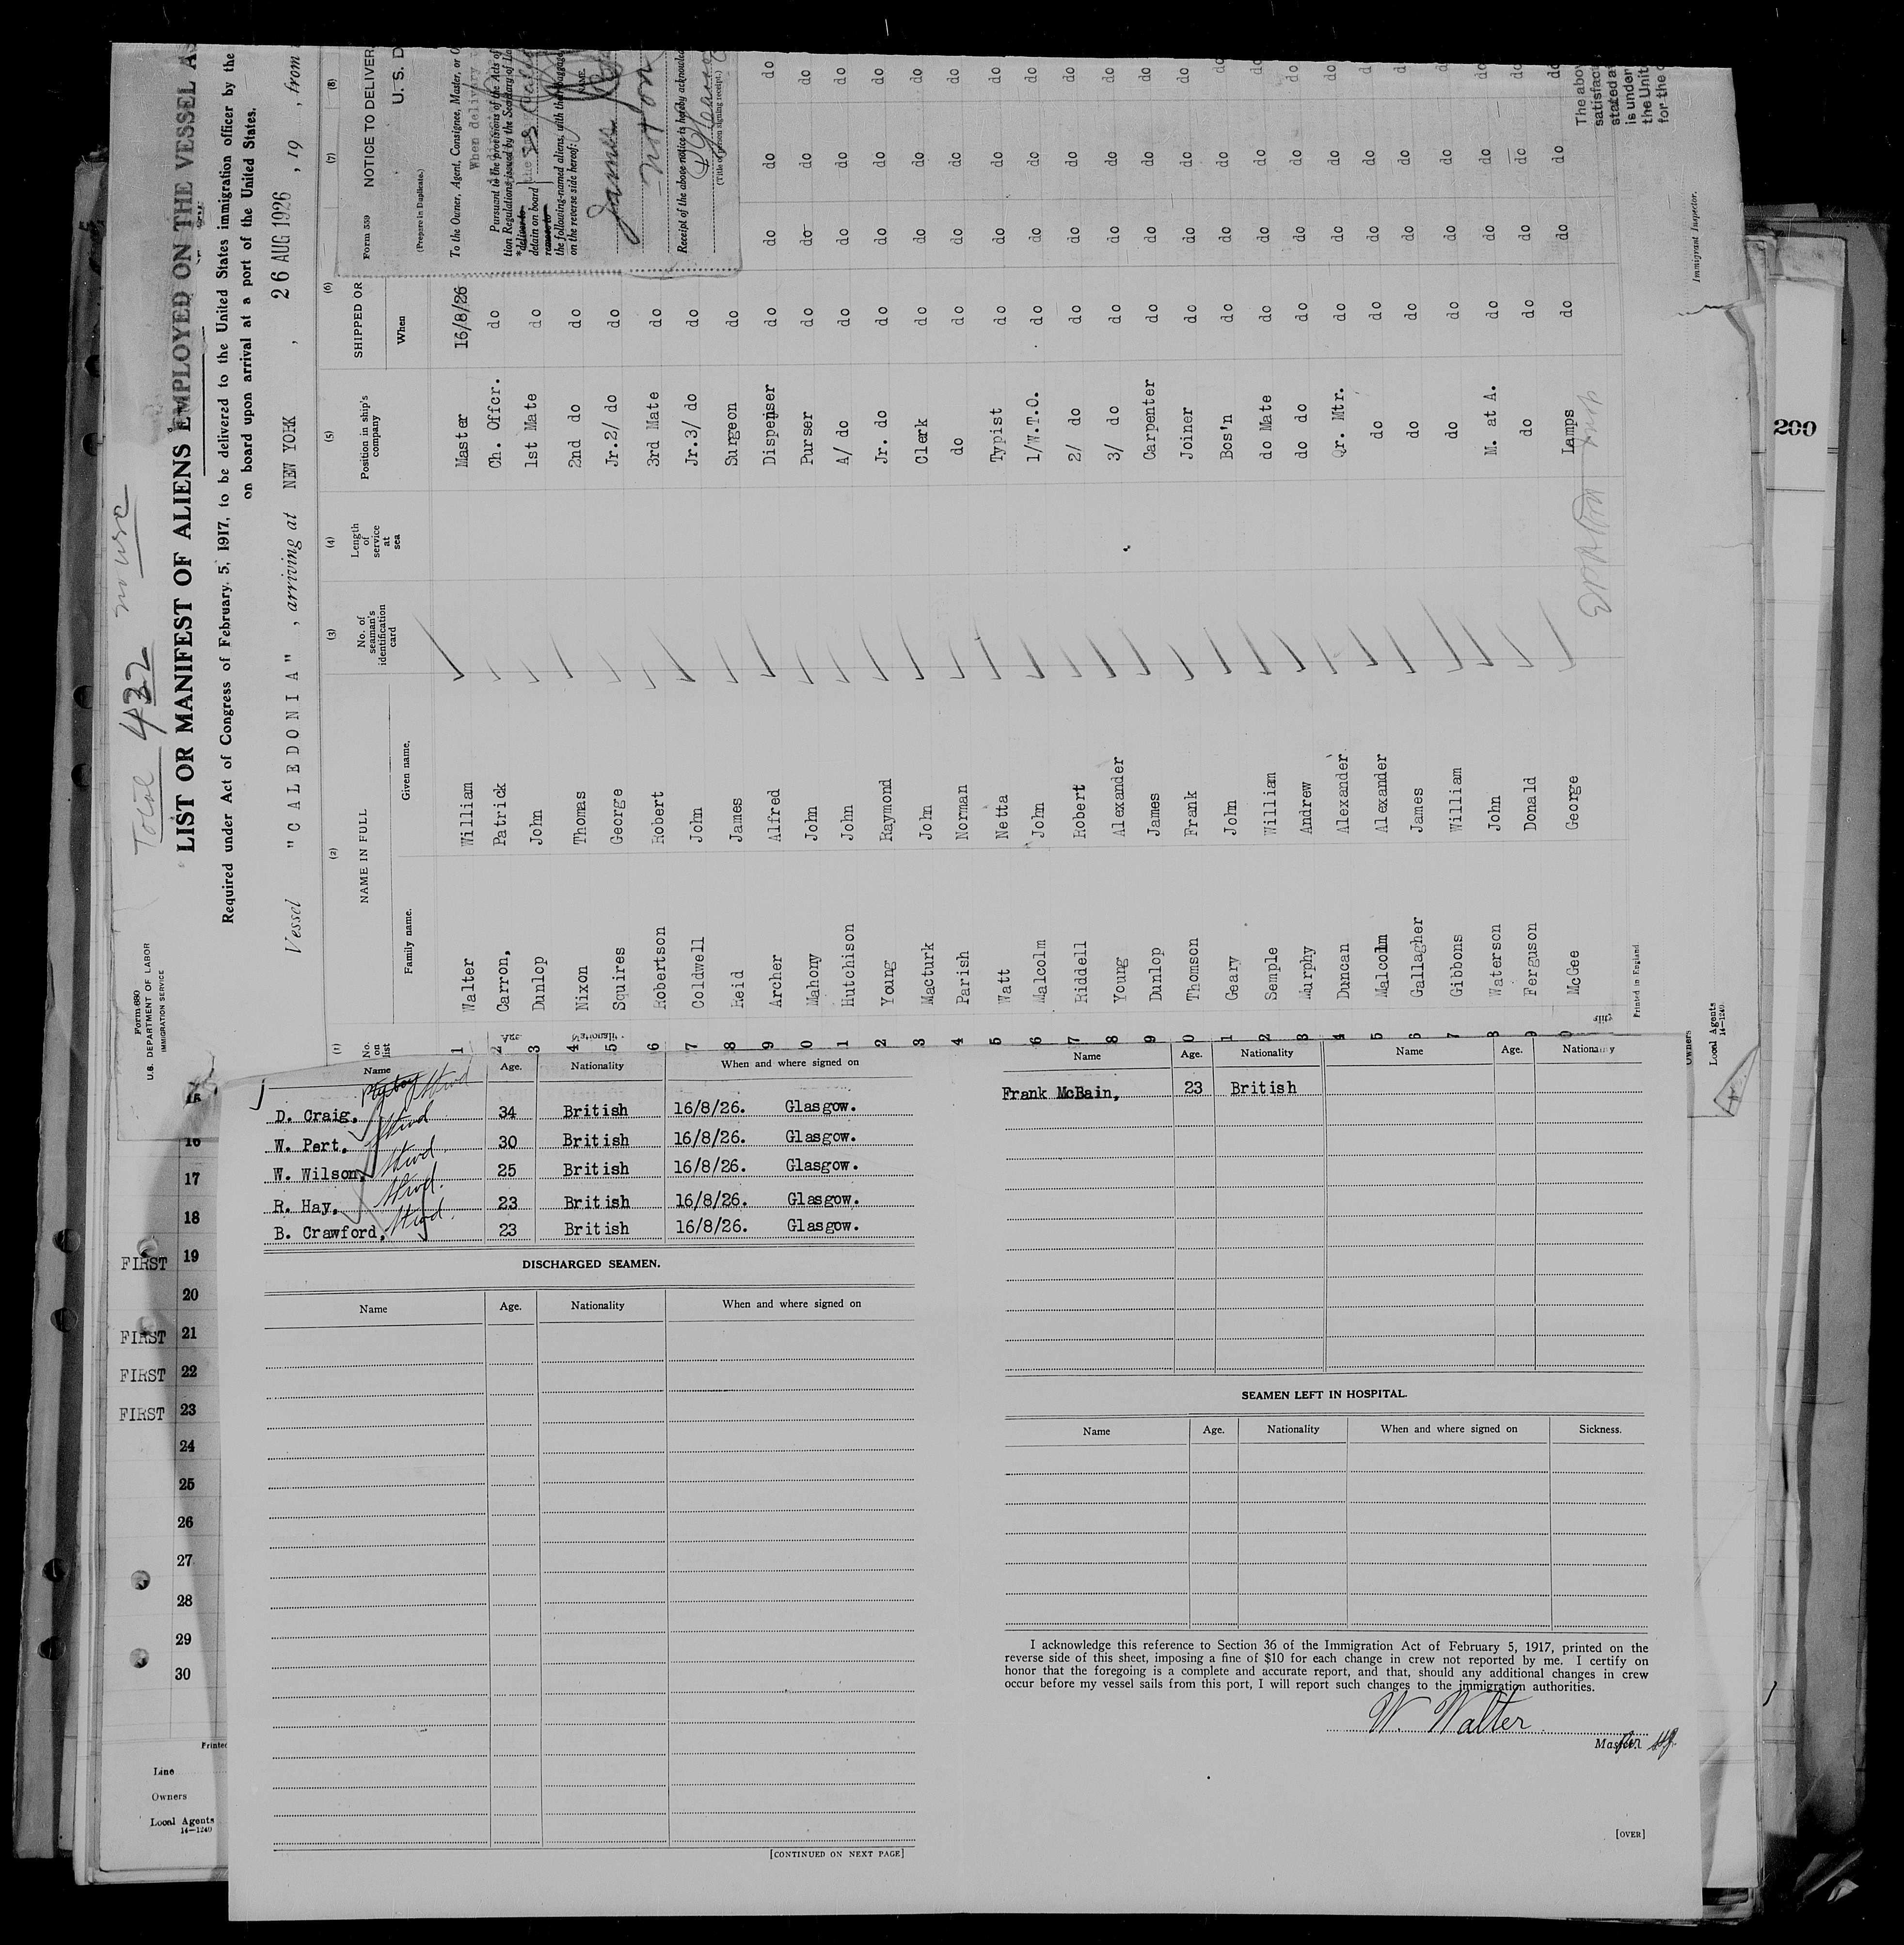 Total 432 no wsc
Form 680
U. S. DEPARTMENT OF LABOR
IMMIGRATION SERVICE
LIST OR MANIFEST OF ALIENS EMPLOYED ON THE VESSEL AS
Required under Act of Congress of February 5, 1917, to be delivered to the United States immigration officer by the
on board upon arrival at a port of the United States.
Vessel "CALEDONIA", arriving at NEW YORK, 26 AUG 1926, 19 , from
(1) (2) (3) (4) (5) (6) (7) (8)
No. on list NAME IN FULL No. of seaman's identification card Length of service at sea Position in ship's company SHIPPED OR
Family name. Given name. When
1 Walter William Master 16/8/26
2 Carron, Patrick Ch. Offcr. do
3 Dunlop John 1st Mate do
4 Nixon Thomas 2nd do do
5 Squires George Jr.2/ do do
6 Robertson Robert 3rd Mate do
7 Coldwell John Jr.3/ do do
8 Reid James Surgeon do
9 Archer Alfred Dispenser do do do do
0 Mahony John Purser do do do do
1 Hutchison John A/ do do do do do
2 Young Raymond Jr. do do do do do
3 Macturk John Clerk do do do do
4 Parish Norman do do do do do
5 Watt Netta Typist do do do do
6 Malcolm John 1/W.T.O. do do do do
7 Riddell Robert 2/ do do do do do
8 Young Alexander 3/ do do do do do
9 Dunlop James Carpenter do do do do
0 Thomson Frank Joiner do do do do
1 Geary John Bos'n do do do do
2 Semple William do Mate do do do do
3 Murphy Andrew do do do do do do
4 Duncan Alexander Qr. Mtr. do do do do
5 Malcolm Alexander do do do do d
6 Gallagher James do do do do d
7 Gibbons William do do do do d
8 Waterson John M. at A. do do do do
9 Ferguson Donald do do do do do
0 McGee George Lamps do do do do
Printed in England
Form 559 NOTICE TO DELIVER,
(Prepare in Duplicate.) U. S. D
To the Owner, Agent, Consignee, Master, or O
When delivery
Pursuant to the provisions of the Acts of
tion Regulations issued by the Secretary of La
detain on board
the following-named aliens, with their baggage
on the reverse side hereof:
NAME.
James
Receipt of the above notice is hereby acknowled
(Title of person signing receipt.)
The abov
satisfact
stated a
is under
the Unit
for the
Immigrant Inspector.
Owners
Local Agents
14-1240
200
Name Age. Nationality When and where signed on
D. Craig, Stwd 34 British 16/8/26. Glasgow.
W. Pert, Stwd 30 British 16/8/26. Glasgow.
W. Wilson, Stwd 25 British 16/8/26. Glasgow.
R. Hay, Stwd. 23 British 16/8/26. Glasgow.
B. Crawford, Stwd. 23 British 16/8/26. Glasgow.
DISCHARGED SEAMEN.
Name Age. Nationality When and where signed on
[CONTINUED ON NEXT PAGE]
Name Age. Nationality Name Age. Nationality
Frank McBain, 23 British
SEAMEN LEFT IN HOSPITAL.
Name Age. Nationality When and where signed on Sickness.
I acknowledge this reference to Section 36 of the Immigration Act of February 5, 1917, printed on the
reverse side of this sheet, imposing a fine of $10 for each change in crew not reported by me. I certify on
honor that the foregoing is a complete and accurate report, and that, should any additional changes in crew
occur before my vessel sails from this port, I will report such changes to the immigration authorities.
W. Walter
Master.
[OVER]
15
16
17
18
FIRST 19
20
FIRST 21
FIRST 22
FIRST 23
24
25
26
27
28
29
30
Printed
Line
Owners
Local Agents
14-1240